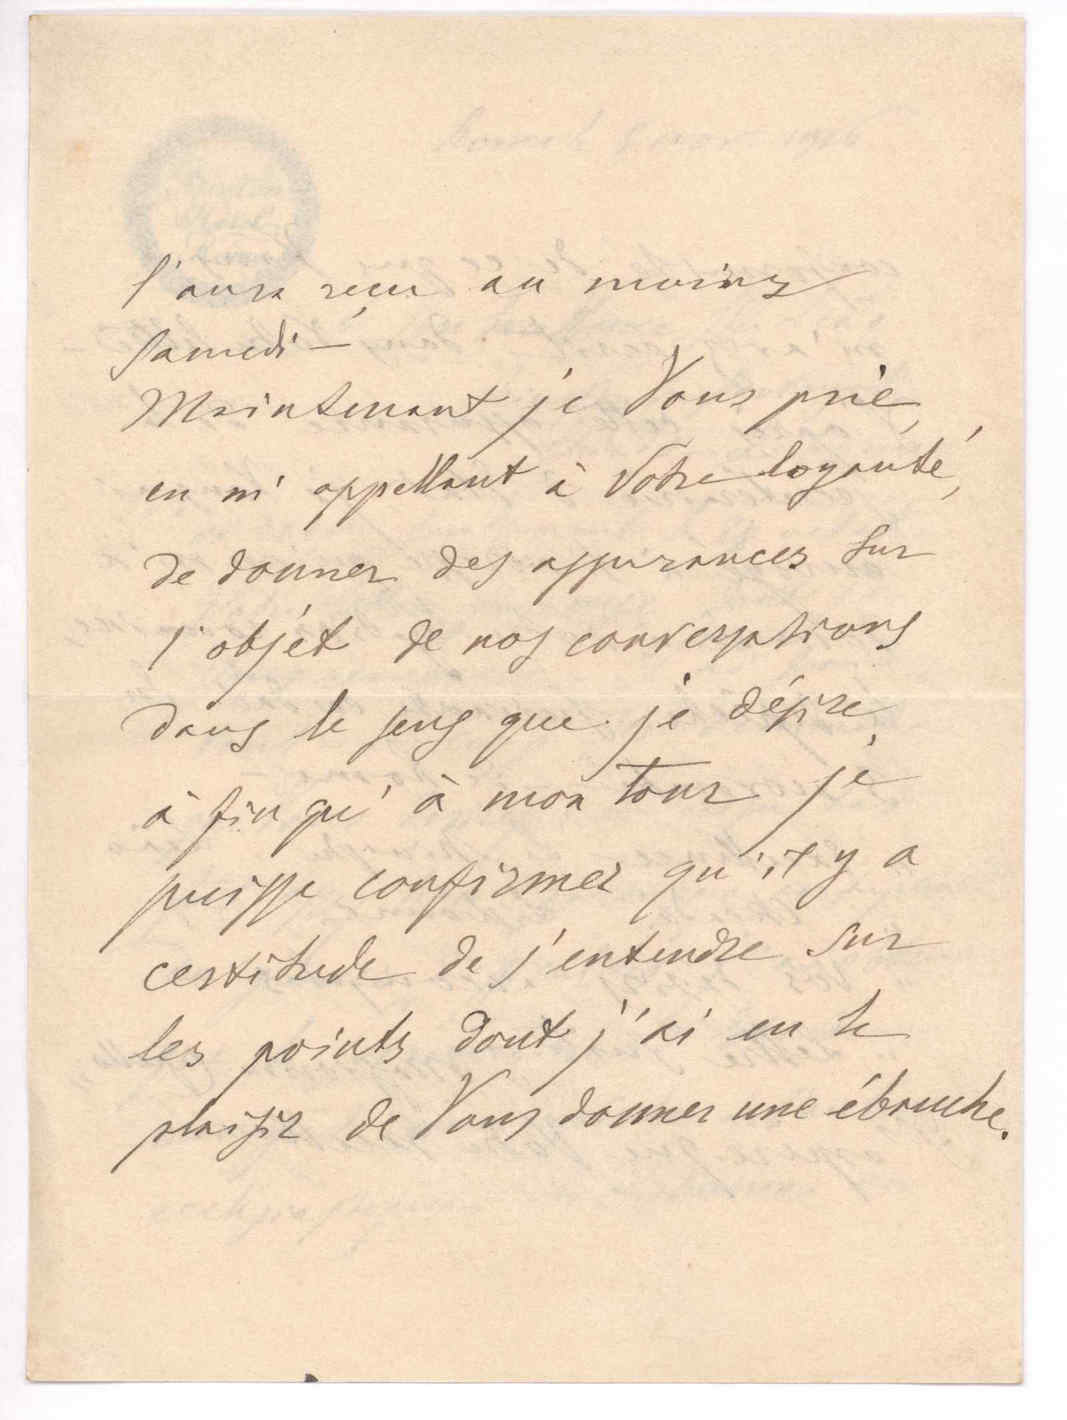 l'aura reçu au moins
samedi —
Maintenant je Vous prie,
en m'appellant à Votre loyauté,
de donner des assurances sur
l'objet de nos conversations
dans le sens que je désire,
à fin qu'à mon tour je
puisse confirmer qu'il y a
certitude de s'entendre sur
les points dont j'ai eu le
plaisir de Vous donner une ébauche.